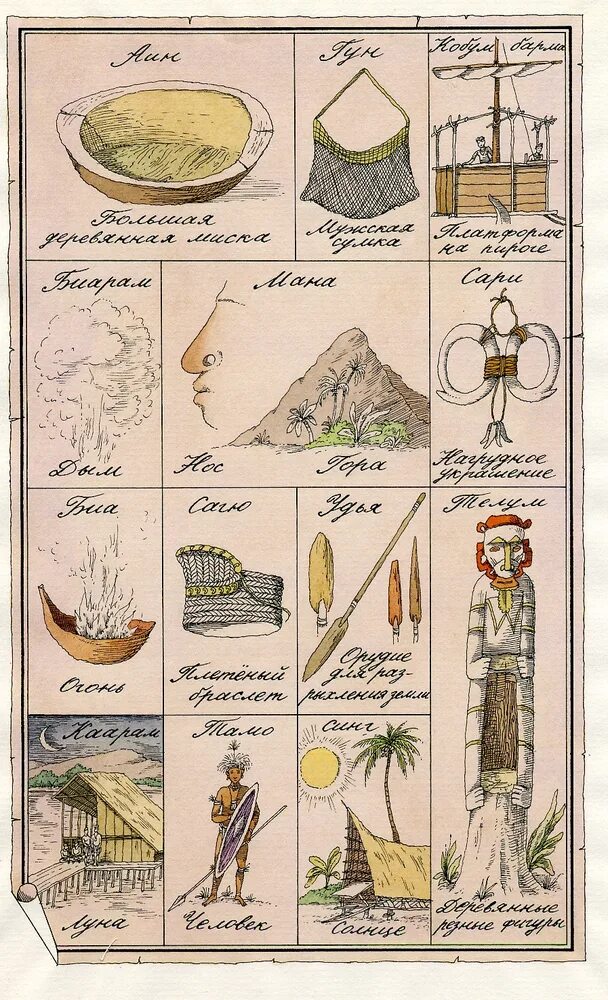 Аин
Большая
деревянная миска
Гун
Мужская
сумка
Кобум барма
Платформа
на пироге
Биарам
Дым
Мана
Нос
Гора
Сари
Нагрудное
украшение
Биа
Огонь
Сагю
Плетёный
браслет
Удья
Орудие
для раз-
рыхления земли
Телум
Деревянные
резные фигуры
Каарам
Луна
Тамо
Человек
Синг
Солнце